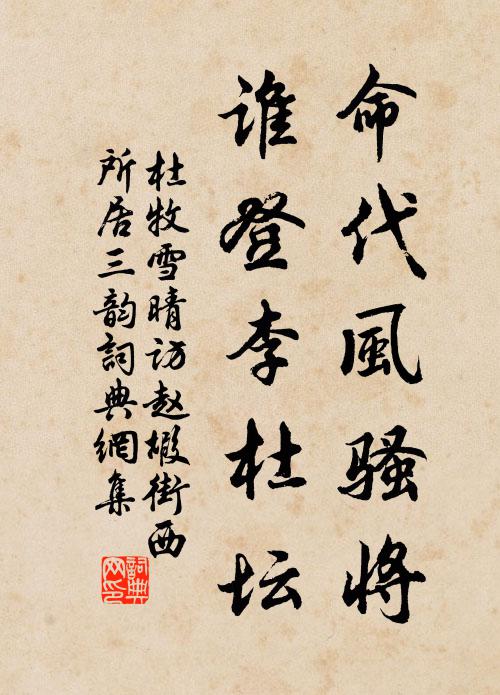 命代風骚将
谁登李杜坛
杜牧雪晴访赵嘏街西
所居三韵詞典網集
詞典网印